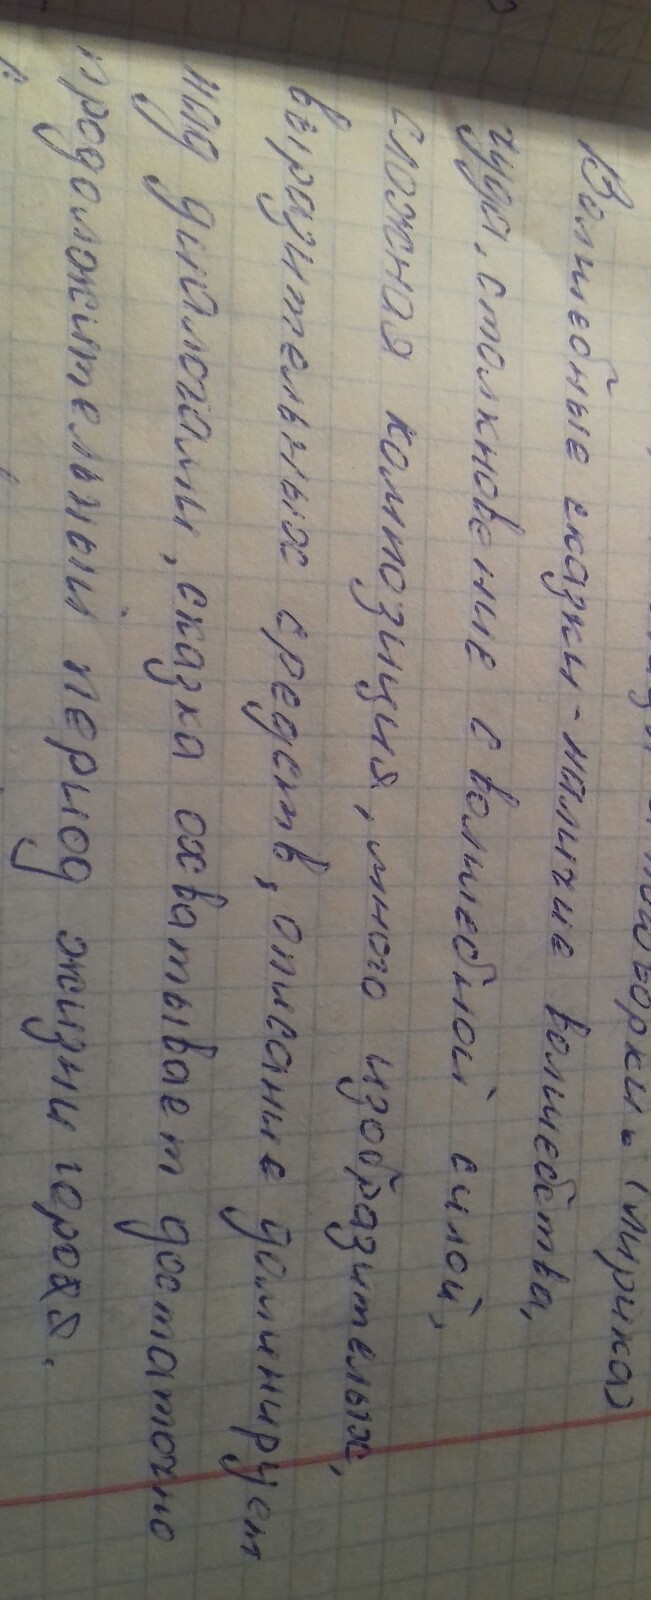 (лирика)
Волшебные сказки - наличие волшебства,
чуда, столкновение с волшебной силой,
сложная композиция, много изобразителых,
выразительных средств, описание доминирует
над диалогами, сказка охватывает достаточно
продолжительный период жизни героя.